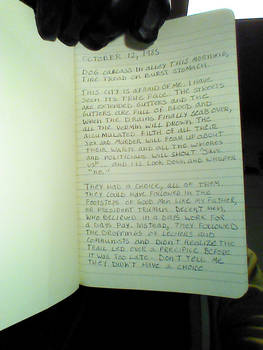 OCTOBER 12, 1985
DOG CARCASS IN ALLEY THIS MORNING,
TIRE TREAD ON BURST STOMACH.
THIS CITY IS AFRAID OF ME. I HAVE
SEEN ITS TRUE FACE. THE STREETS
ARE EXTENDED GUTTERS AND THE
GUTTERS ARE FULL OF BLOOD AND
WHEN THE DRAINS FINALLY SCAB OVER,
ALL THE VERMIN WILL DROWN. THE
ACCUMULATED FILTH OF ALL THEIR
SEX AND MURDER WILL FOAM UP ABOUT
THEIR WAISTS AND ALL THE WHORES
AND POLITICIANS WILL SHOUT "SAVE
US!"... AND I'LL LOOK DOWN, AND WHISPER
"NO."
THEY HAD A CHOICE, ALL OF THEM.
THEY COULD HAVE FOLLOWED IN THE
FOOTSTEPS OF GOOD MEN LIKE MY FATHER,
OR PRESIDENT TRUMAN. DECENT MEN,
WHO BELIEVED IN A DAYS WORK FOR
A DAYS PAY. INSTEAD, THEY FOLLOWED
THE DROPPINGS OF LECHERS AND
COMMUNISTS AND DIDN'T REALIZE THE
TRAIL LED OVER A PRECIPICE BEFORE
IT WAS TOO LATE. DON'T TELL ME
THEY DIDN'T HAVE A CHOICE